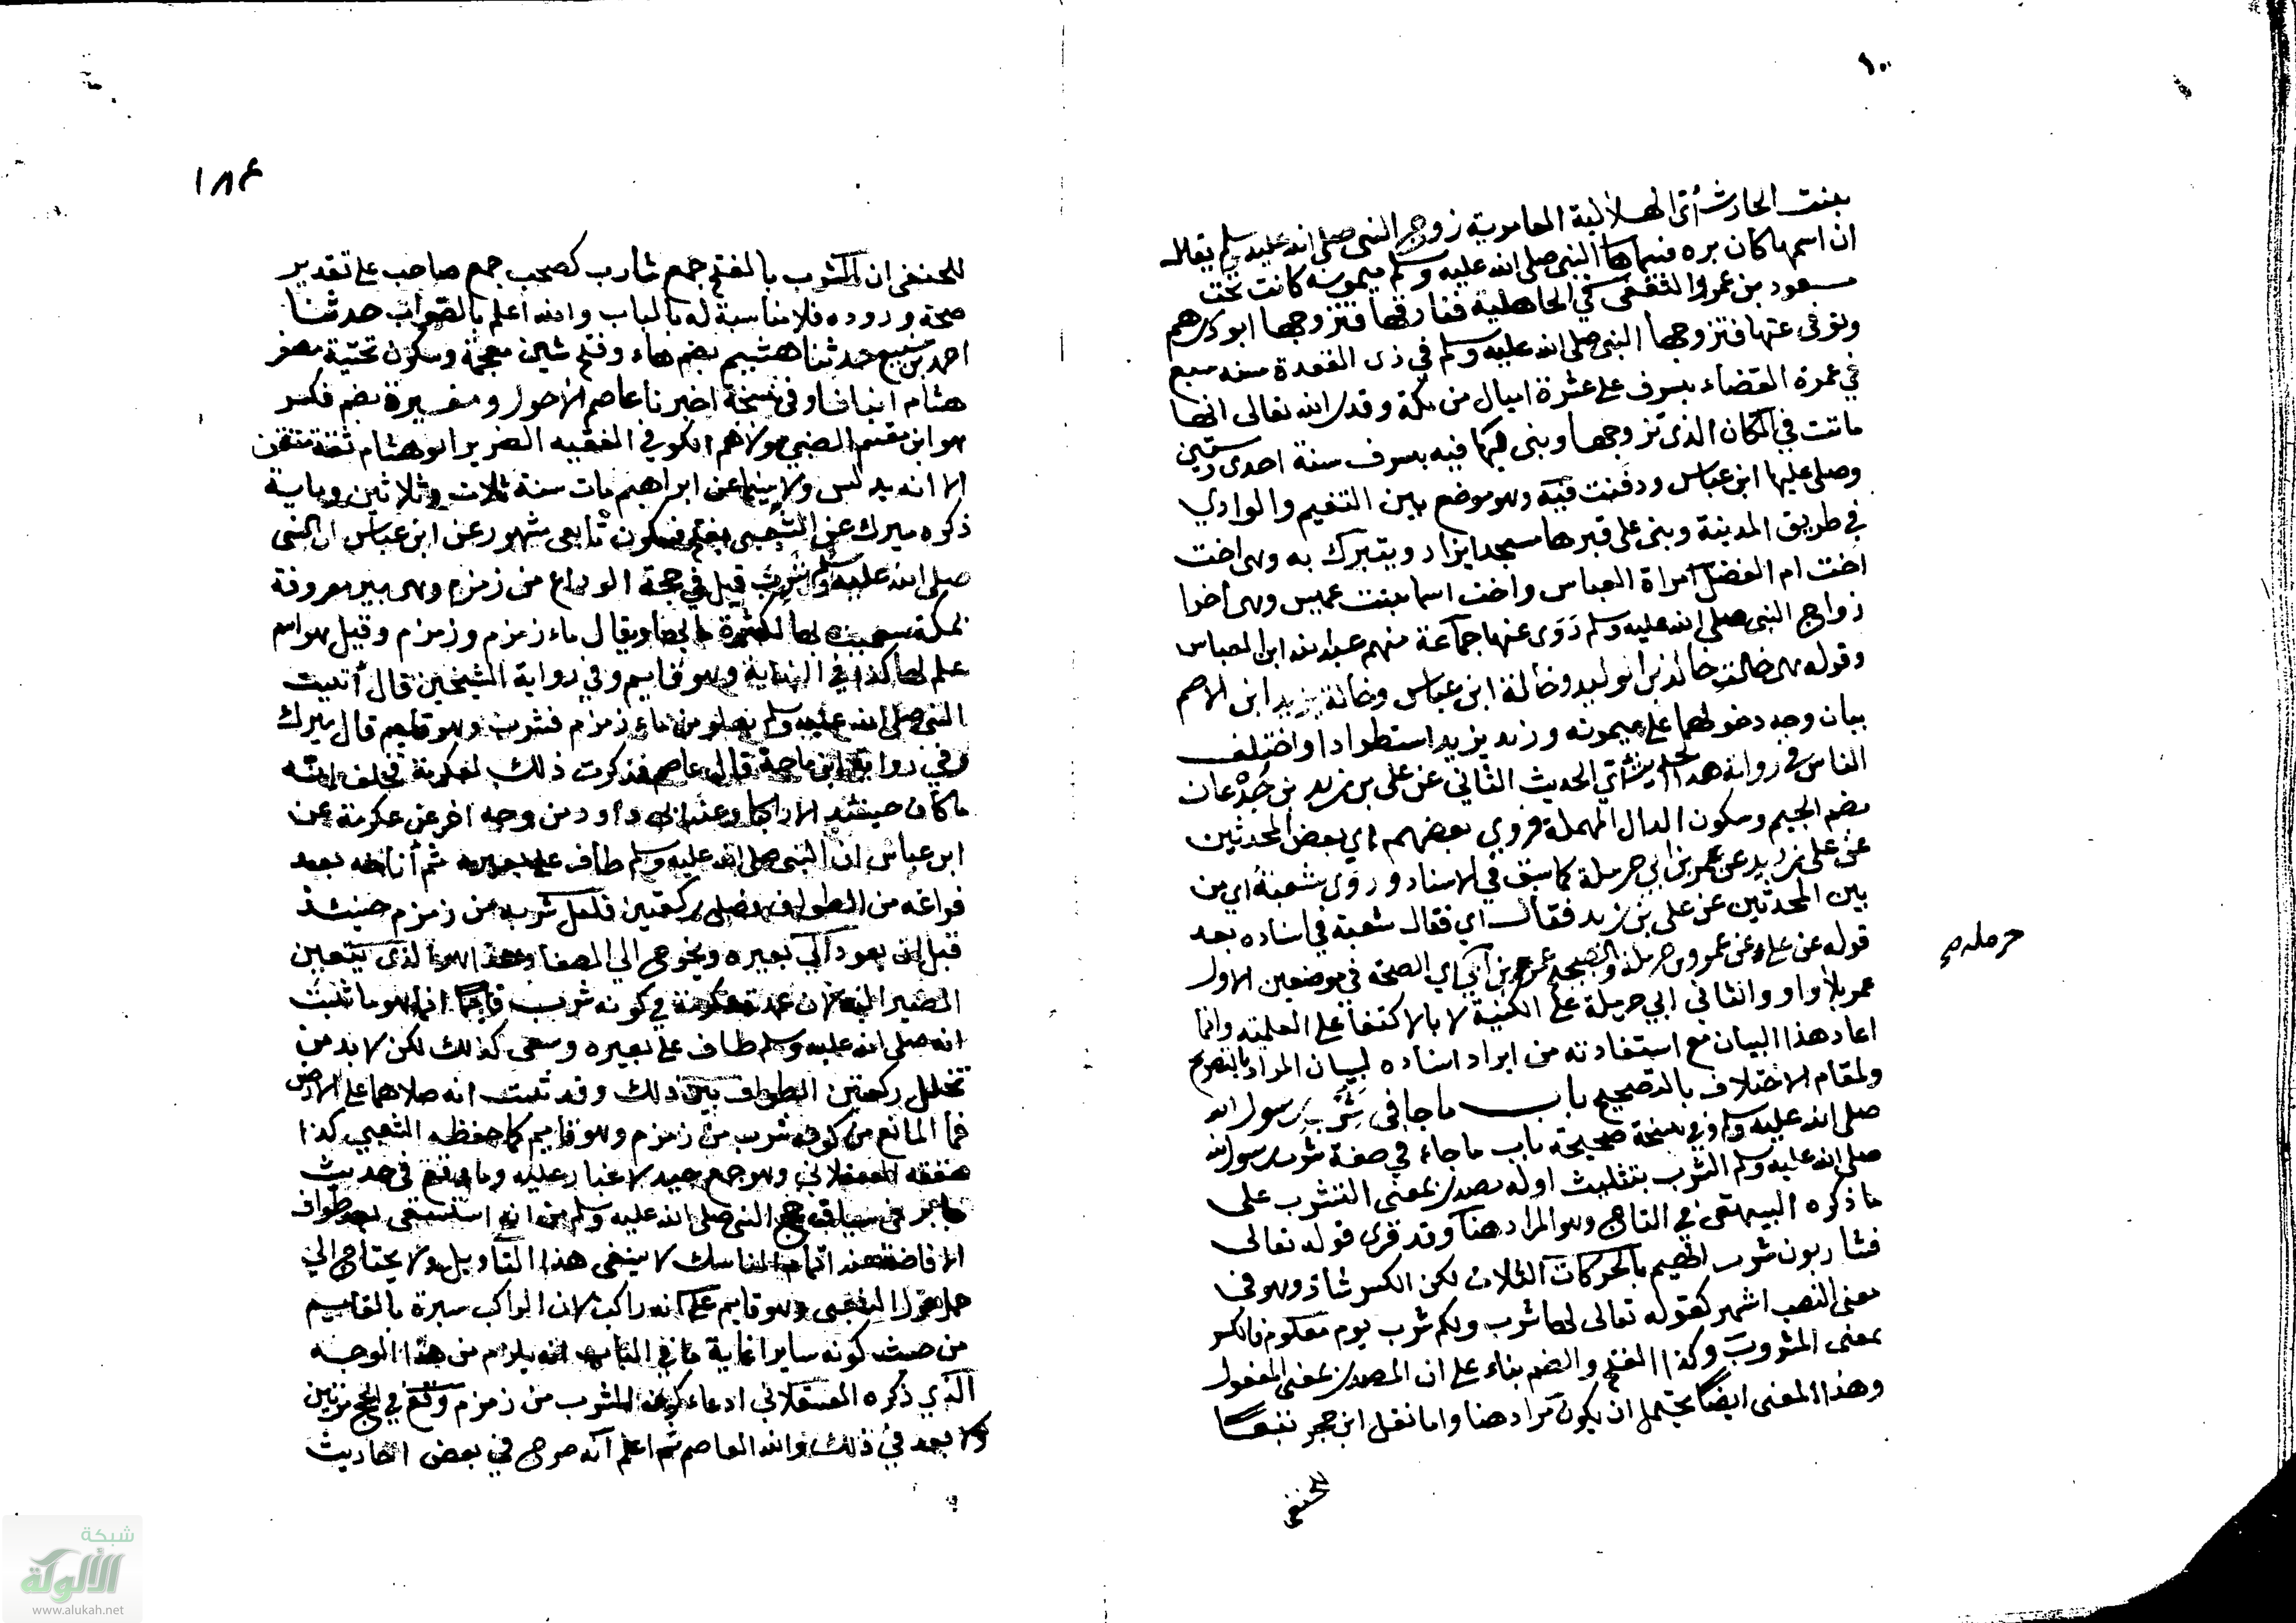 بنت الحارث أي الهلالية العامرية زوج النبي صلى الله عليه وسلم يقال
ان اسمها كان بره فسماها النبي صلى الله عليه وسلم ميمونة كانت تحت
مسعود بن عمرو الثقفي في الجاهلية ففارقها فتزوجها ابو درهم
وتوفي عنها فتزوجها النبي صلى الله عليه وسلم في ذي القعدة سنه سبع
في عمرة القضاء بسرف على عشرة اميال من مكة وقدر الله تعالى انها
ماتت في المكان الذي تزوجها وبنى بها فيه بسرف سنة احدى وستين
وصلى عليها ابن عباس ودفنت فيه وهو موضع بين التنعيم والوادي
في طريق المدينة وبنى على قبرها مسجد يزار ويتبرك به وهي اخت
اخت ام الفضل امراة العباس واخت اسما بنت عميس وهي أخرا
زواج النبي صلى الله عليه وسلم روى عنها جماعة منهم عبد الله ابن العباس
وقوله هي خالة خالد بن الوليد وخالة ابن عباس وخالة يزيد ابن الاصم
بيان وجه دخولهما على ميمونه وزيد يزيد استطرادا واختلف
الناس في رواية هذا الحديث أي الحديث الثاني عن علي بن زيد بن جدعان
بضم الجيم وسكون الدال المهملة فروى بعضهم اي بعض المحدثين
عن علي بن زيد عن عمر بن ابي حرملة كما سبق في الاسناد وروى شعبة اي من
بين المحدثين عن علي بن زيد فقال اي فقال شعبة في اسناده بعد
قوله عن علي عن عمرو بن حرملة والصحيح عمر بن أبي اي الصحة في موضعين الاول
حرمله صح
عمر بلا واو والثاني ابي حرملة على الكنية لا بالاكتفا على العلمية وانما
اعاد هذا البيان مع استفادته من ايراد اسناده لبيان المراد بالتصريح
ولمقام الاختلاف بالتصحيح باب ما جا في شرب رسول الله
صلى الله عليه وسلم وفي نسخة صحيحة باب ما جاء في صفة شرب رسول الله
صلى الله عليه وسلم الشرب بتثليث اوله مصدر بمعنى التشرب على
ما ذكره البيهقي في التاج وهو المراد هنا وقد قرئ قوله تعالى
فشاربون شرب الهيم بالحركات الثلاث لكن الكسر شاذ وهو في
معنى النصب اشهر كقوله تعالى لها شرب ولكم شرب يوم معلوم فالكسر
بمعنى المشروب وكذا الفتح والضم بناء على ان المصدر بمعنى المفعول
وهذا المعنى ايضا يحتمل ان يكون مرادا هنا واما نقل ابن حجر تبعا
للحنفي
١٨٤
للحنفي ان الشرب بالفتح جمع شارب كصحب جمع صاحب على تقدير
صحة وروده فلا مناسبة له بالباب والله اعلم بالصواب حدثنا
احمد بن منيع حدثنا هشيم بضم هاء وفتح شين معجمة وسكون تحتية مصغر
هشام انبانا وفي نسخة اخبرنا عاصم الاحول ومغيرة بضم فكسر
هو ابن مقسم الضبي مولاهم الكوفي الفقيه الضرير ابو هشام ثقة متقن
الا انه يدلس ولا سيما عن ابراهيم مات سنة ثلاث وثلاثين وماية
ذكره ميرك عن الشعبي بفتح فسكون تابعي مشهور عن ابن عباس ان النبي
صلى الله عليه وسلم شرب قيل في حجة الوداع من زمزم وهي بير معروفة
بمكة سميت بها لكثرة مائها ويقال ماء زمزم وزمزم وقيل هو اسم
علم لها كذا في النهاية وهو قايم وفي رواية الشيخين قال أتيت
النبي صلى الله عليه وسلم بدلو من ماء زمزم فشرب وهو قايم قال ميرك
وفي رواية ابن ماجة قال عاصم فذكرت ذلك لعكرمة فحلف انه
ما كان حينئذ الا راكبا وعند ابي داود من وجه اخر عن عكرمة عن
ابن عباس ان النبي صلى الله عليه وسلم طاف على بعيره ثم أناخه بعد
فراغه من الطواف فصلى ركعتين فلعل شربه من زمزم حينئذ
قبل ان يعود الى بعيره ويخرج الى الصفا وهذا هو الذي يتعين
المصير اليه لان عمدة عكرمة في كونه شرب قائما انما هو ما ثبت
انه صلى الله عليه وسلم طاف على بعيره وسعى كذلك لكن لا بد من
تخلل ركعتين الطواف بين ذلك وقد ثبت انه صلاهما على الارض
فما المانع من كونه شرب من زمزم وهو قايم كما حفظه الشعبي كذا
حققه العسقلاني وهو جمع جيد لا غبار عليه وما وقع في حديث
جابر في سياق حج النبي صلى الله عليه وسلم من انه استسقى بعد طواف
الافاضة عند اتمام المناسك لا ينفي هذا التاويل ولا يحتاج الى
حمل قول الشعبي وهو قايم على انه راكب لان الراكب شبيه بالقايم
من حيث كونه سايرا غاية ما في الباب انه يلزم من هذا الوجه
الذي ذكره العسقلاني ادعاء كون الشرب من زمزم وقع في الحج مرتين
ولا بعد في ذلك والله العاصم ثم اعلم انه صرح في بعض احاديث
شبكة
الألوكة
www.alukah.net